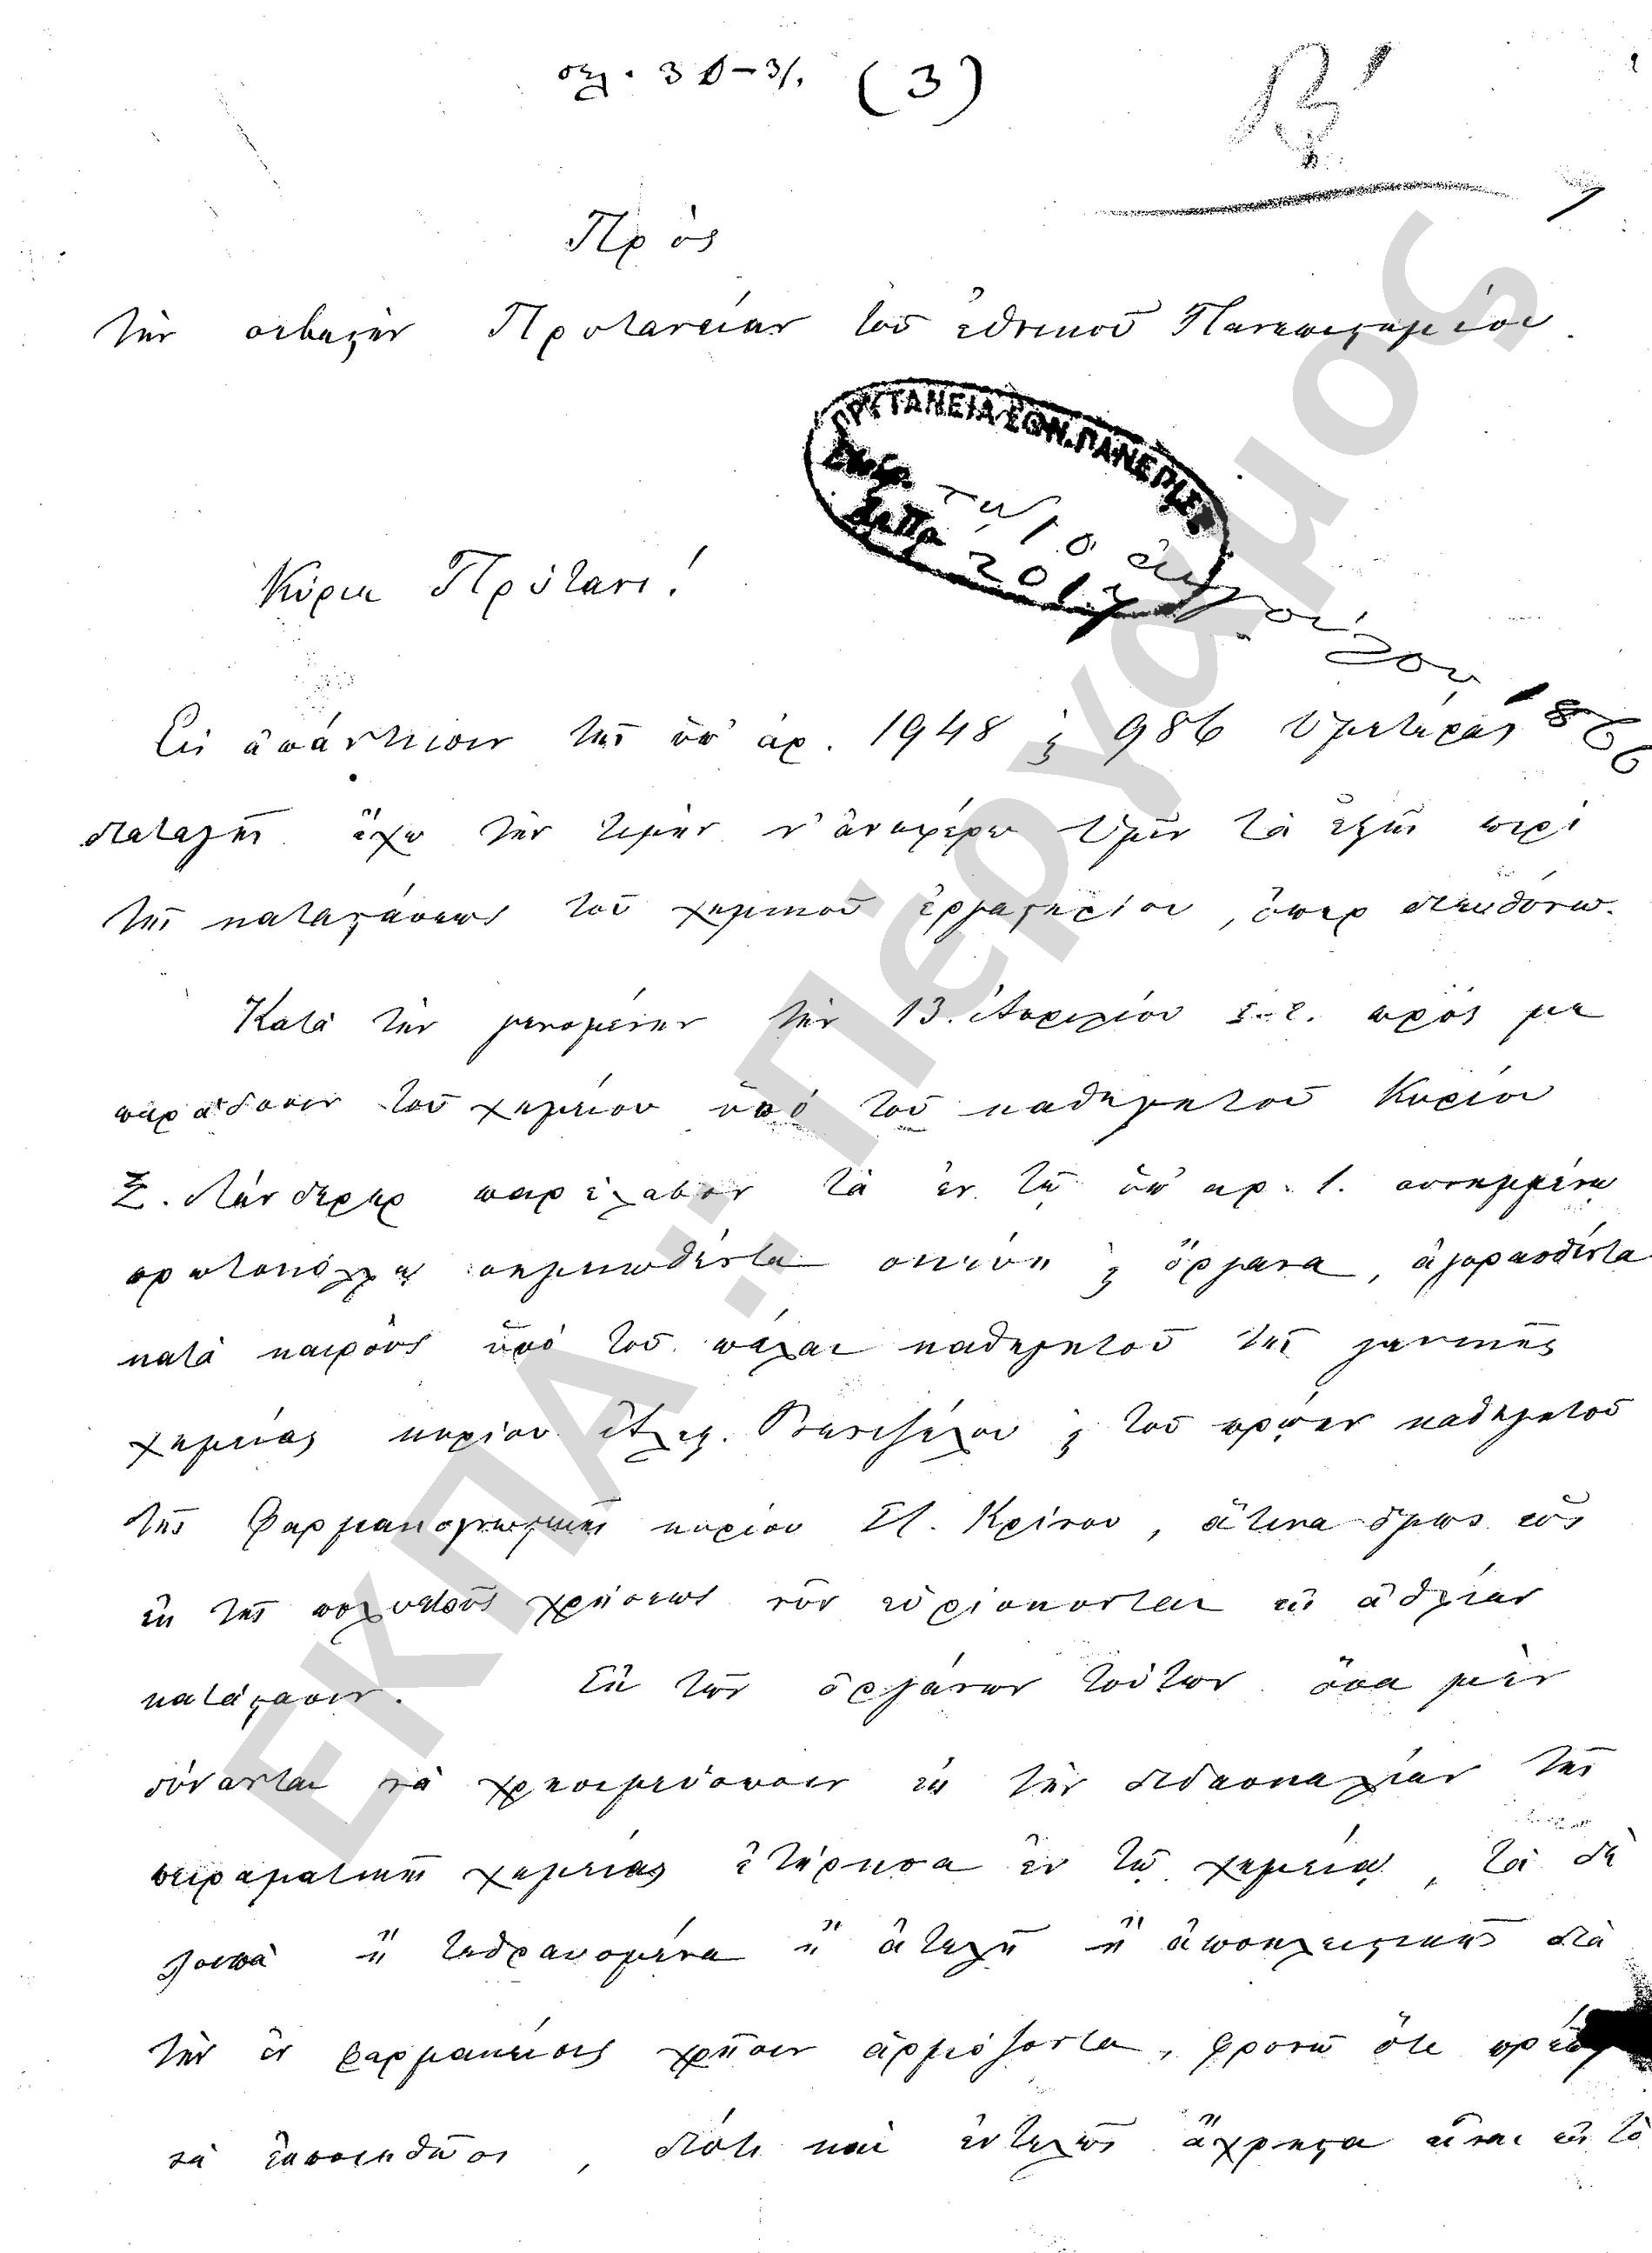 σελ. 30-31. (3)
Β'
Πρὸς
τὴν σεβαστὴν Πρυτανείαν τοῦ ἐθνικοῦ Πανεπιστημίου.
ΠΡΥΤΑΝΕΙΑ ΕΘΝ. ΠΑΝΕΠΙΣΤ
τῇ 10 αὐγούστου 1866
Κύριε Πρύτανι!
Εἰς ἀπάντησιν τῆς ὑπ' ἀρ. 1948 ϗ 986 Ὑμετέρας
διαταγῆς ἔχω τὴν τιμὴν ν' ἀναφέρω Ὑμῖν τὰ ἑξῆς περὶ
τῆς καταστάσεως τοῦ χημικοῦ ἐργαστηρίου, ὅπερ διευθύνω.
Κατὰ τὴν γενομένην τὴν 13. Ἀπριλίου ἔ. ἔ. πρός με
παράδοσιν τοῦ χημείου ὑπὸ τοῦ καθηγητοῦ Κυρίου
Ξ. Λάνδερερ παρέλαβον τὰ ἐν τῷ ὑπ' ἀρ. 1. συνημμένῳ
πρωτοκόλλῳ σημειωθέντα σκεύη ϗ ὄργανα, ἀγορασθέντα
κατὰ καιροὺς ὑπὸ τοῦ πάλαι καθηγητοῦ τῆς γενικῆς
χημείας κυρίου Ἀλεξ. Βενιζέλου ϗ τοῦ πρώην καθηγητοῦ
τῆς Φαρμακογνωστικῆς κυρίου Στ. Κρίνου, ἅτινα ὅμως ὡς
ἐκ τῆς πολυετοῦς χρήσεως νῦν εὑρίσκονται εἰς ἀθλίαν
κατάστασιν. Ἐκ τῶν ὀργάνων τούτων ὅσα μὲν
δύνανται νὰ χρησιμεύσωσιν εἰς τὴν διδασκαλίαν τῆς
πειραματικῆς χημείας ἐτήρησα ἐν τῷ χημείῳ, τὰ δὲ
λοιπὰ ἢ τεθραυσμένα ἢ ἀτελῆ ἢ ἀποκλειστικῶς διὰ
τὴν ἐν φαρμακείοις χρῆσιν ἁρμόζοντα, φρονῶ ὅτι πρέπει
νὰ ἐκποιηθῶσι, διότι καὶ ἐντελῶς ἄχρηστα εἶναι εἰς τὸ
ΕΚΠΑ:: Πέργαμος